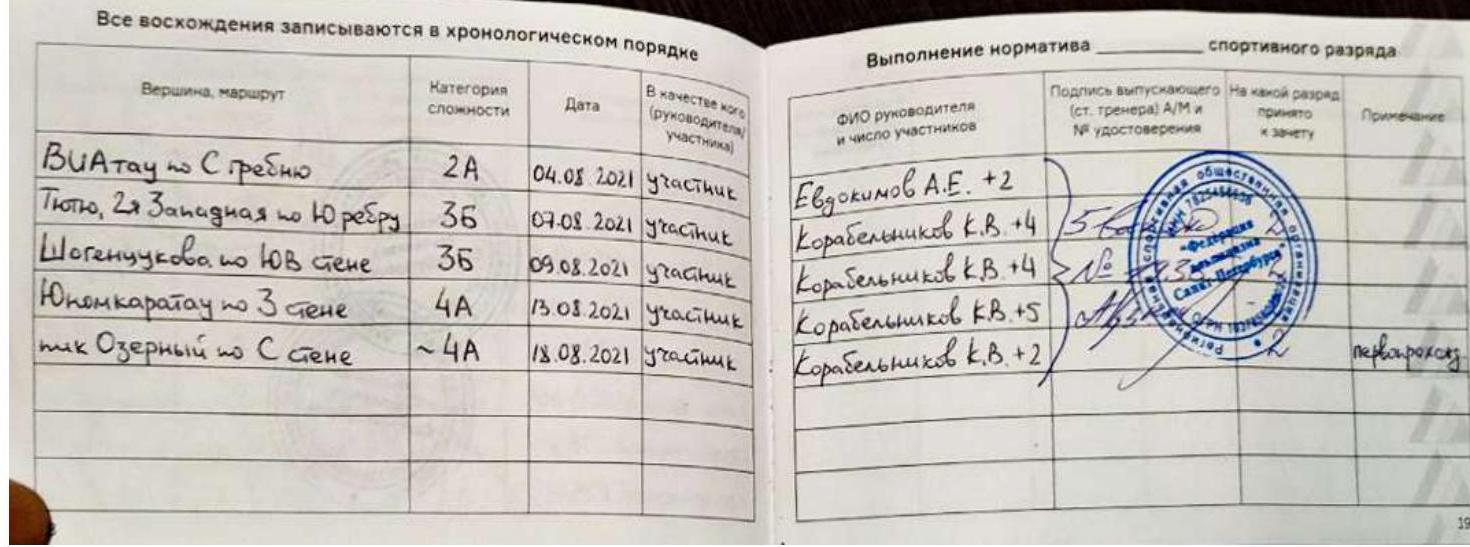 Все восхождения записываются в хронологическом порядке
Вершина, маршрут Категория сложности Дата В качестве кого (руководителя/участника)
ВИАтау по С гребню 2А 04.08.2021 участник
Тютю, 2я Западная по Ю ребру 3Б 07.08.2021 участник
Шогенцукова по ЮВ стене 3Б 09.08.2021 участник
Юномкаратау по З стене 4А 13.08.2021 участник
пик Озерный по С стене ~4А 18.08.2021 участник
Выполнение норматива спортивного разряда
ФИО руководителя и число участников Подпись выпускающего (ст. тренера) А/М и № удостоверения На какой разряд принято к зачету Примечание
Евдокимов А.Е. +2
Корабельников К.В. +4
Корабельников К.В. +4 №
Корабельников К.В. +5
Корабельников К.В. +2 2 первопроход
Региональная спортивная общественная организация
"Федерация альпинизма Санкт-Петербурга"
19